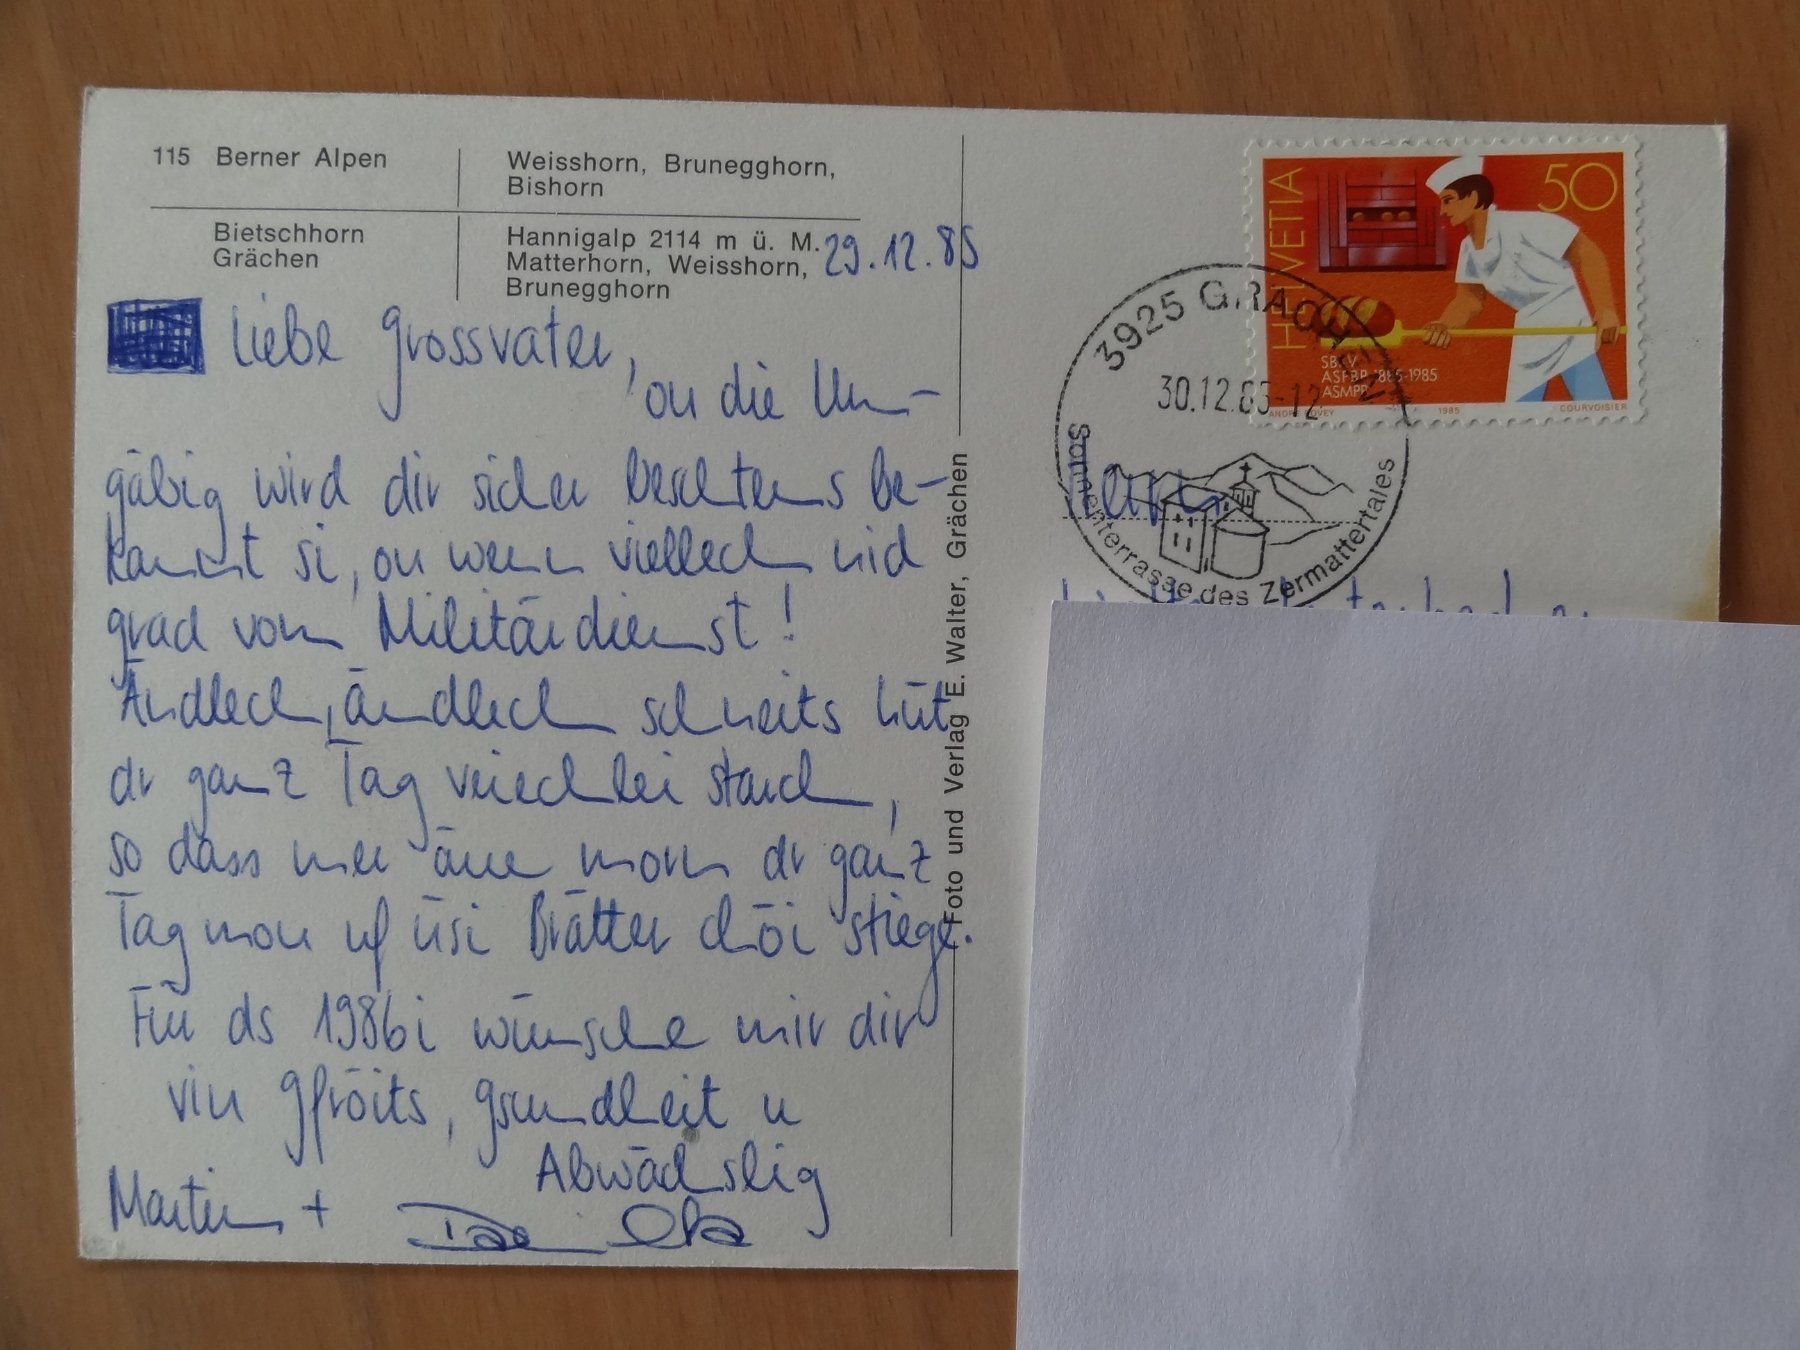 115 Berner Alpen
Weisshorn, Brunegghorn,
Bishorn
Bietschhorn
Grächen
Hannigalp 2114 m ü. M.
Matterhorn, Weisshorn,
Brunegghorn
29.12.85
Liebe Grossvater,
ou die Um-
gäbig wird dir sicher beschtens be-
kannt si, ou wenn viellech nid
grad vom Militärdienst!
Ändlech, ändlech schneits hüt
dr ganz Tag ziemlech starch,
so dass mer äne morn dr ganz
Tag mou uf üsi Brätter chöi stiege.
Für ds 1986i wünsche mir dir
viu Gfröits, Gsundheit u
Abwächslig
Martin + Daniela
Foto und Verlag E. Walter, Grächen
HELVETIA
50
ASFBP 1885-1985
ASMPP
1985
COURVOISIER
3925 GRÄCHEN
30.12.85-12
Sonnenterrasse des Zermattertales
Herr